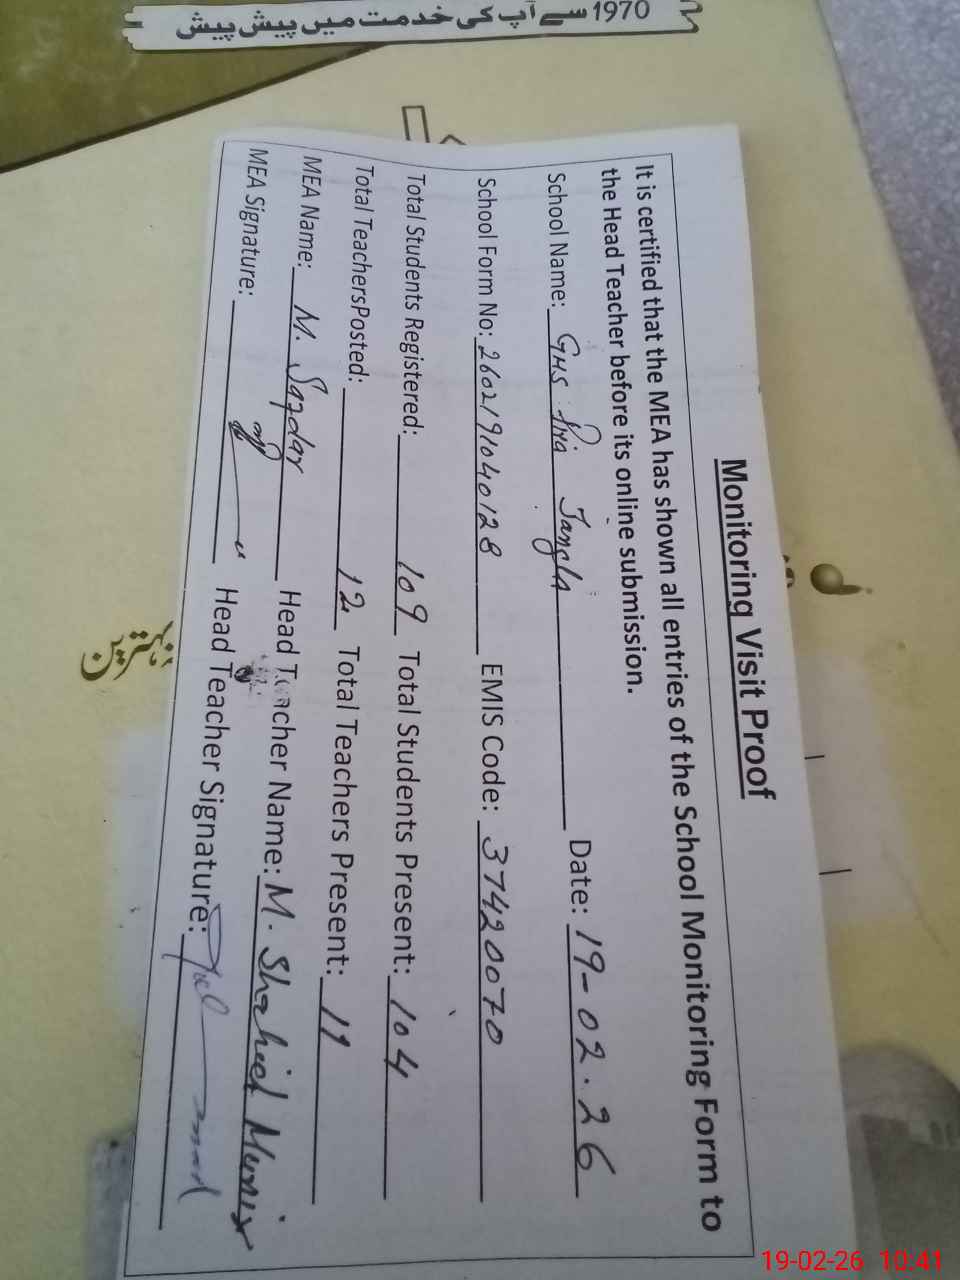 1970 سے آپ کی خدمت میں پیش پیش
Monitoring Visit Proof
It is certified that the MEA has shown all entries of the School Monitoring Form to
the Head Teacher before its online submission.
School Name: GHS Pia Jangla Date: 19-02-26
School Form No: 2602191040128 EMIS Code: 37420070
Total Students Registered: 109 Total Students Present: 104
Total TeachersPosted: 12 Total Teachers Present: 11
MEA Name: M. Safdar Head Teacher Name: M. Shahid Munir
MEA Signature: Head Teacher Signature:
بہترین
19-02-26 10:41